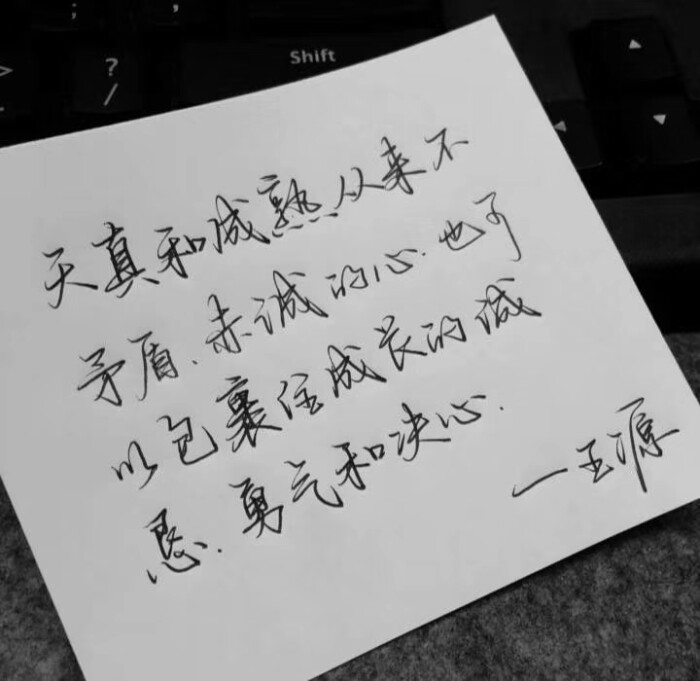 ;
,
? Shift
> /
天真和成熟从来不
矛盾.赤诚的心.也可
以包裹住成长的诚
恳.勇气和决心.
—王源